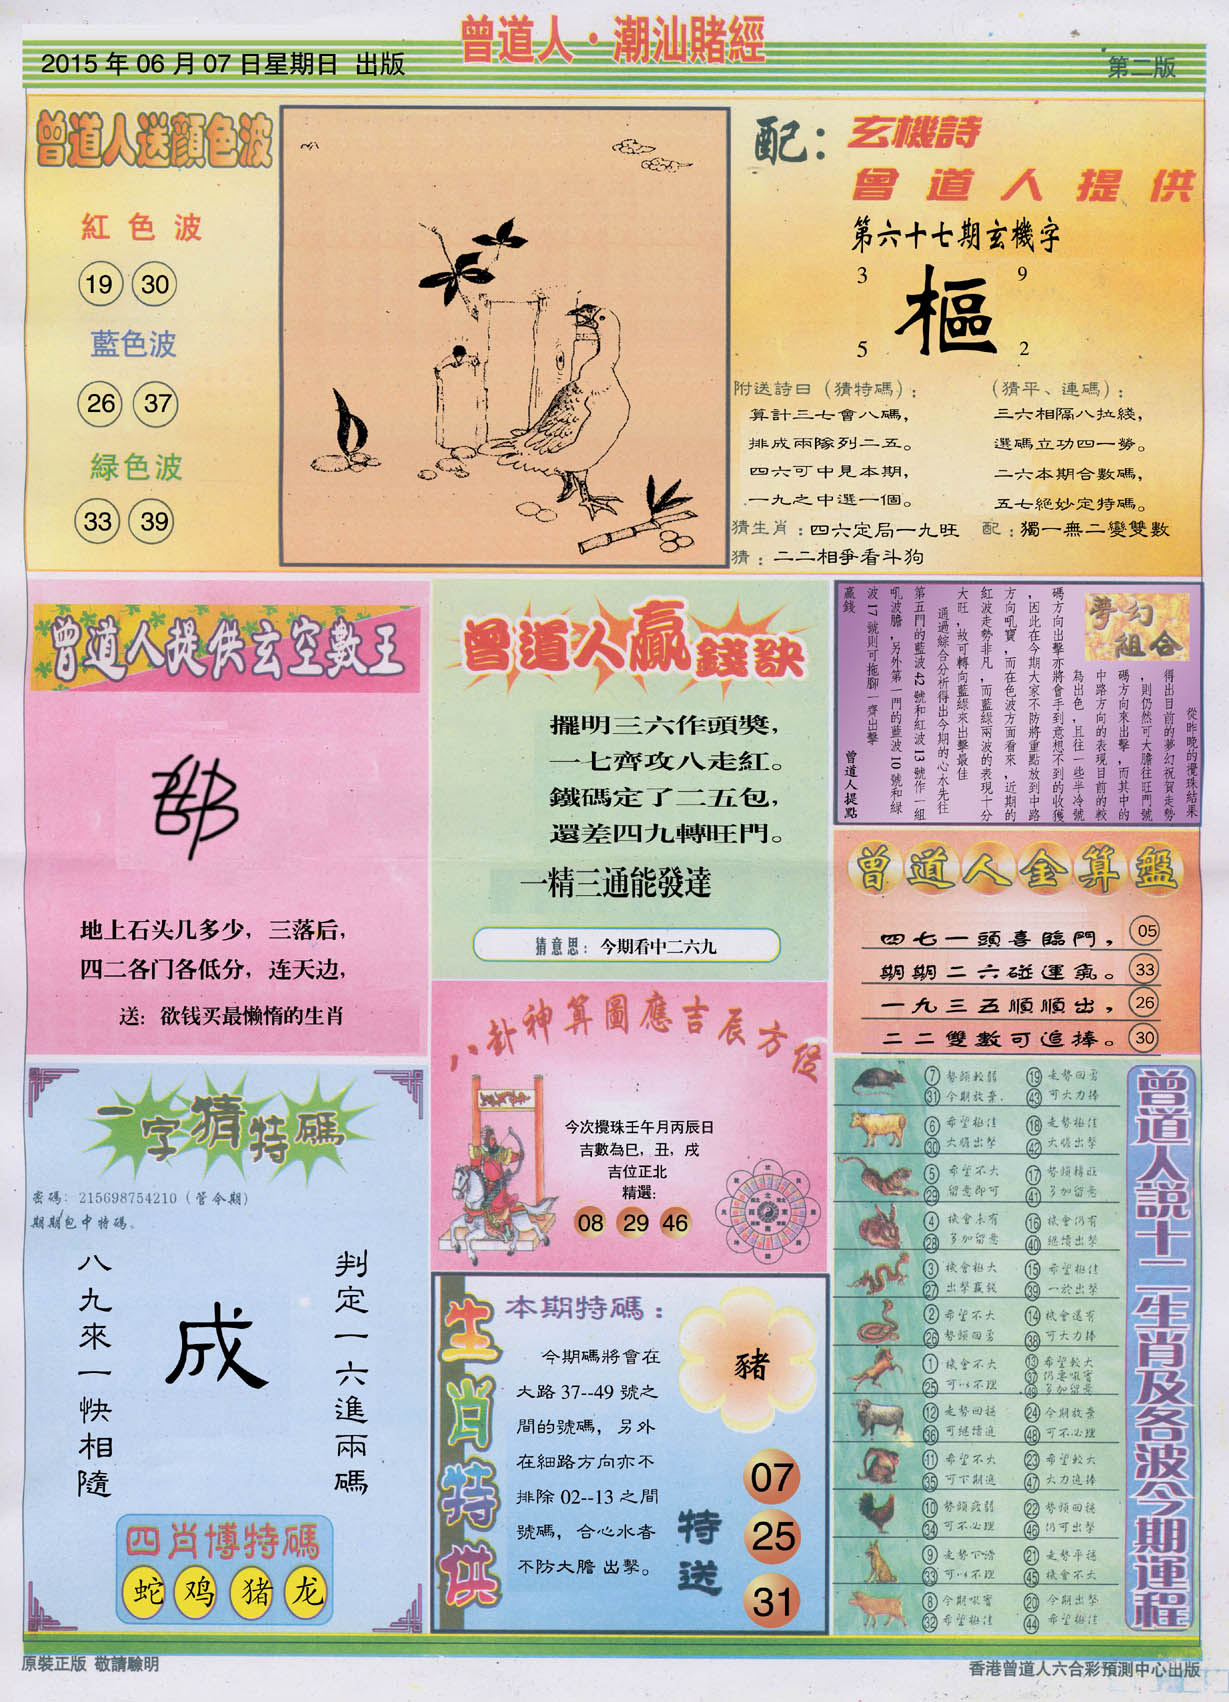 曾道人·潮汕賭經
2015 年 06 月 07 日星期日 出版
第二版
曾道人送顏色波
紅色波
19 30
藍色波
26 37
緑色波
33 39
配：玄機詩
曾道人提供
第六十七期玄機字
3 9
樞
5 2
附送詩曰（猜特碼）：
算計三七會八碼，
排成兩隊列二五。
四六可中見本期，
一九之中選一個。
（猜平、連碼）：
三六相隔八拉綫，
選碼立功四一勞。
二六本期合數碼，
五七絕妙定特碼。
猜生肖：四六定局一九旺
配：獨一無二變雙數
猜：二二相爭看斗狗
曾道人提供玄空數王
地上石头几多少，三落后，
四二各门各低分，连天边，
送：欲钱买最懒惰的生肖
曾道人贏錢訣
擺明三六作頭獎，
一七齊攻八走紅。
鐵碼定了二五包，
還差四九轉旺門。
一精三通能發達
猜意思：今期看中二六九
夢幻組合
從昨晚的攪珠結果
得出目前的夢幻祝賀走勢
，則仍然可大膽往旺門號
碼方向來出擊，而其中的
中路方向的表現目前的較
為出色，且往一些半冷號
碼方向出擊亦將會手到意想不到的收獲
，因此在今期大家不防將重點放到中路
方向吼寶，而在色波方面看來，近期的
紅波走勢非凡，而藍綠兩波的表現十分
大旺，故可轉向藍綠來出擊最佳
通過綜合分析得出今期的心水先往
第五門的藍波 42 號和紅波 13 號作一組
吼波膽，另外第一門的藍波 10 號和綠
波 17 號則可拖腳一齊出擊
贏錢
曾道人提點
曾道人金算盤
四七一頭喜臨門， 05
期期二六碰運氣。 33
一九三五順順出， 26
二二雙數可追捧。 30
八卦神算圖應吉辰方位
今次攪珠壬午月丙辰日
吉數為巳，丑，戌
吉位正北
精選：
08 29 46
一字猜特碼
密碼：215698754210（管令期）
期期包中特碼。
判定一六進兩碼
成
八九來一快相隨
四肖博特碼
蛇 鸡 猪 龙
生肖特供
本期特碼：
今期碼將會在
大路 37--49 號之
間的號碼，另外
在細路方向亦不
排除 02--13 之間
號碼，合心水者
不防大膽 出擊。
豬
特送
07
25
31
曾道人說十二生肖及各波今期運程
7 勢頭較弱 19 走勢回勇
31 今期放棄 43 可大力捧
6 希望極佳 18 走勢極佳
30 大膽出擊 42 大膽出擊
5 希望不大 17 勢頭轉旺
29 留意即可 41 多加留意
4 機會未有 16 機會仍有
28 多加留意 40 繼續出擊
3 機會極大 15 希望極佳
27 出擊贏錢 39 一於出擊
2 希望不大 14 機會還有
26 勢頭回勇 38 可大力捧
1 機會不大 13 希望較大
25 可以不理 37 仍要吼實
49 多加留意
12 走勢回穩 24 今期放棄
36 可繼續追 48 可不必理
11 希望不大 23 希望較大
35 可下期追 47 大力追捧
10 勢頭疲弱 22 勢頭回穩
34 可不必理 46 仍可出擊
9 走勢下滑 21 走勢平穩
33 可以不理 45 機會不大
8 今期吼實 20 今期出擊
32 希望極佳 44 希望極佳
原裝正版 敬請驗明
香港曾道人六合彩預測中心出版